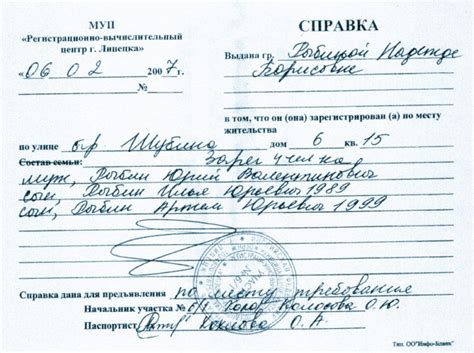 МУП
«Регистрационно-вычислительный
центр г. Липецка»
«06» 02 2007 г.
№
СПРАВКА
Выдана гр. Рыбицкой Надежде
Борисовне
в том, что он (она) зарегистрирован (а) по месту
жительства
по улице б-р Шубина дом 6 кв. 15
Состав семьи: Зарег 4 человека
муж, Рыбин Юрий Валентинович
сын, Рыбин Илья Юрьевич 1989
сын, Рыбин Артем Юрьевич 1999
Справка дана для предъявления по месту требования
Начальник участка № Колосова О.Ю.
Паспортист Хохлова О. А.
Тип. ОО"Инфо-Бланк"